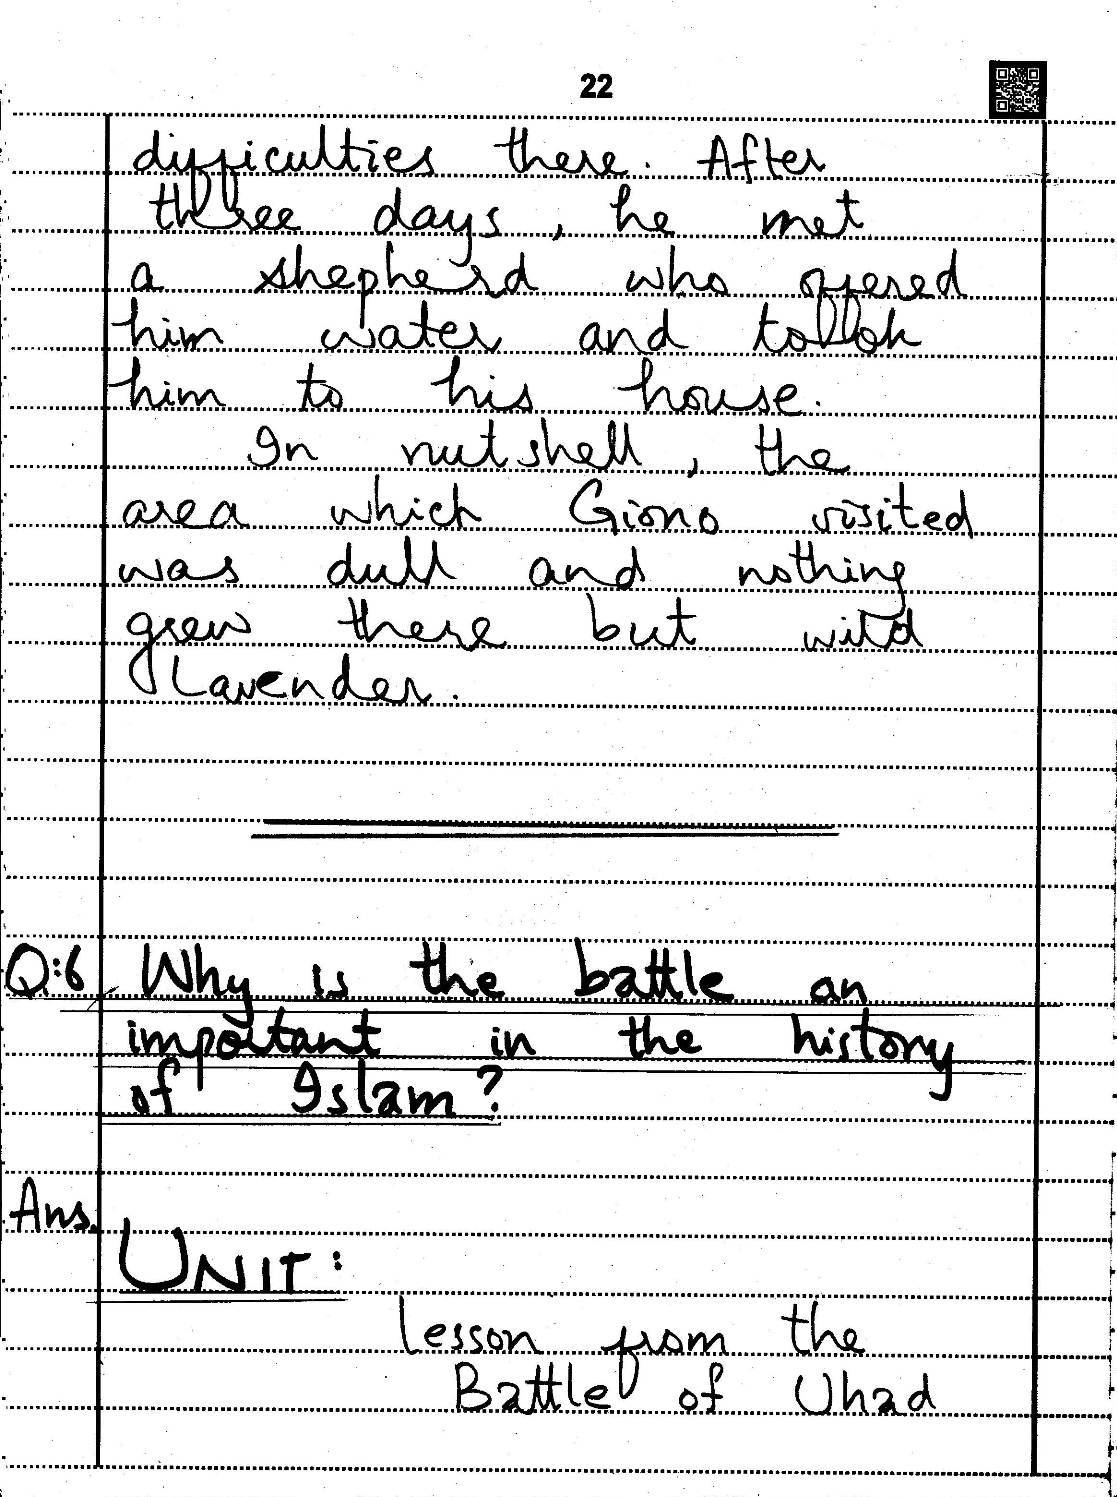 22
difficulties there. After
three days, he met
a shepherd who offered
him water and took
him to his house.
In nutshell, the
area which Giono visited
was dull and nothing
grew there but wild
Lavender.
Q:6 Why is the battle an
important in the history
of Islam?
Ans.
UNIT:
Lesson from the
Battle of Uhad